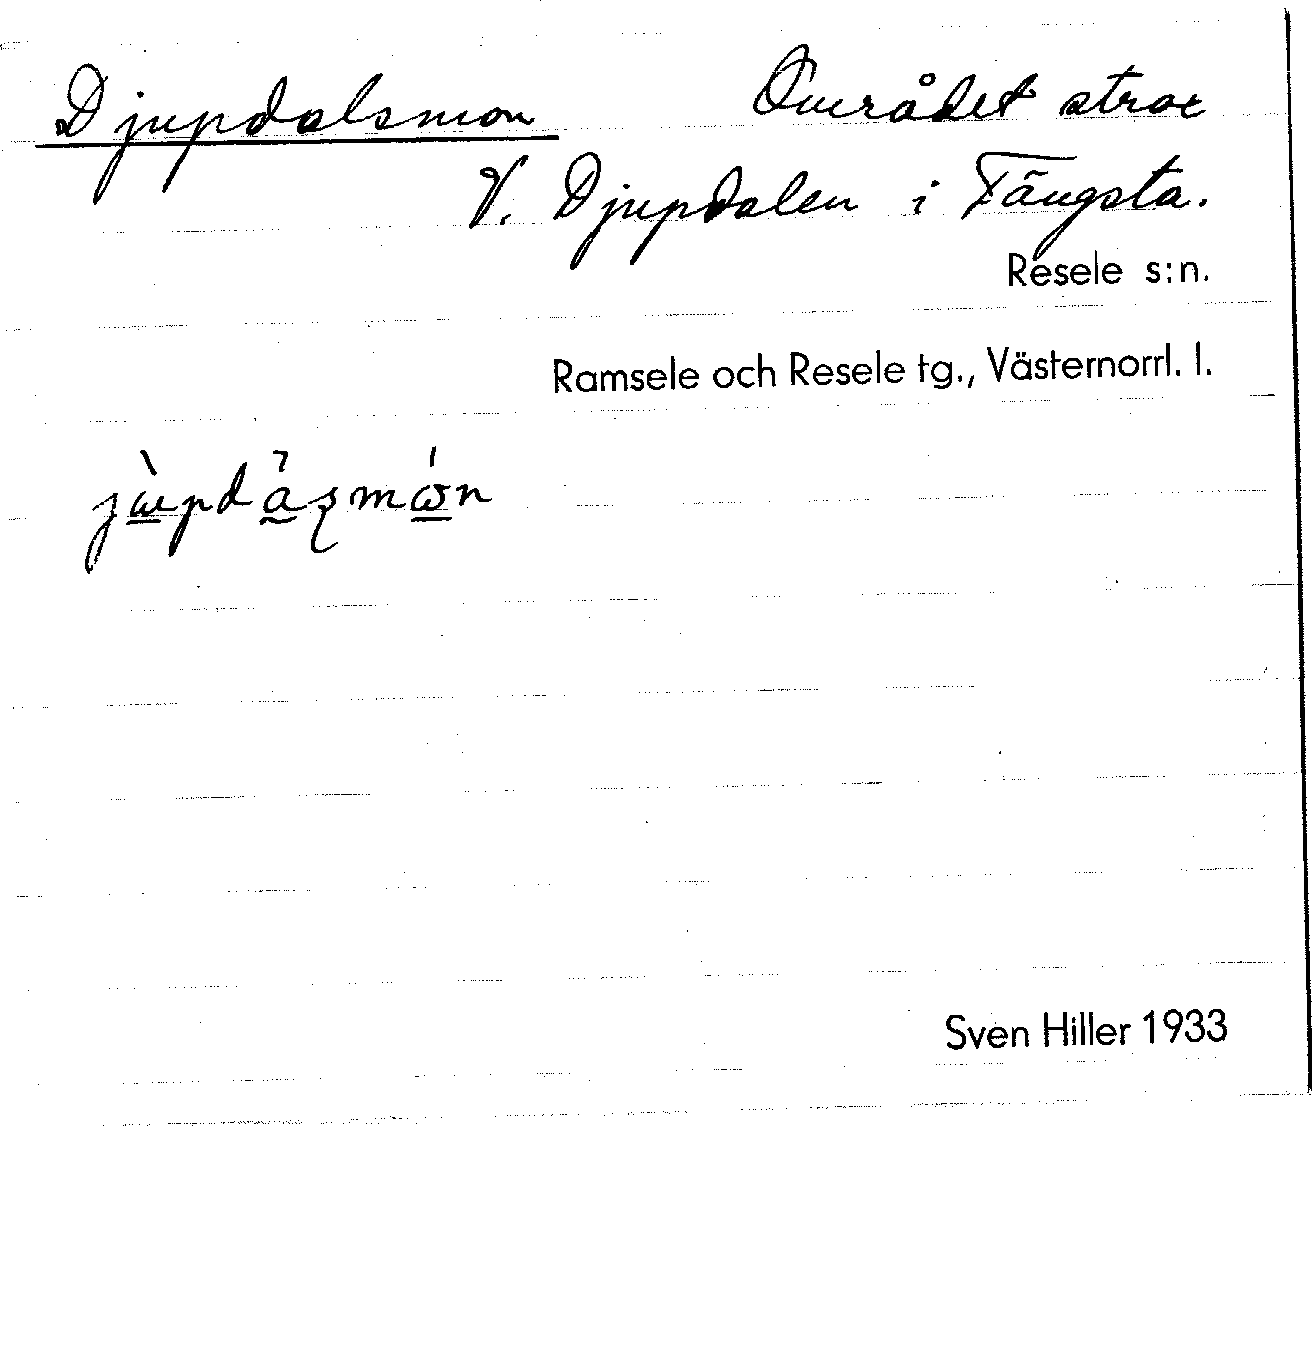 Djupdalsmon Området strax
V. Djupdalen i Tängsta.
Resele s:n.
Ramsele och Resele tg., Västernorrl. l.
Sven Hiller 1933